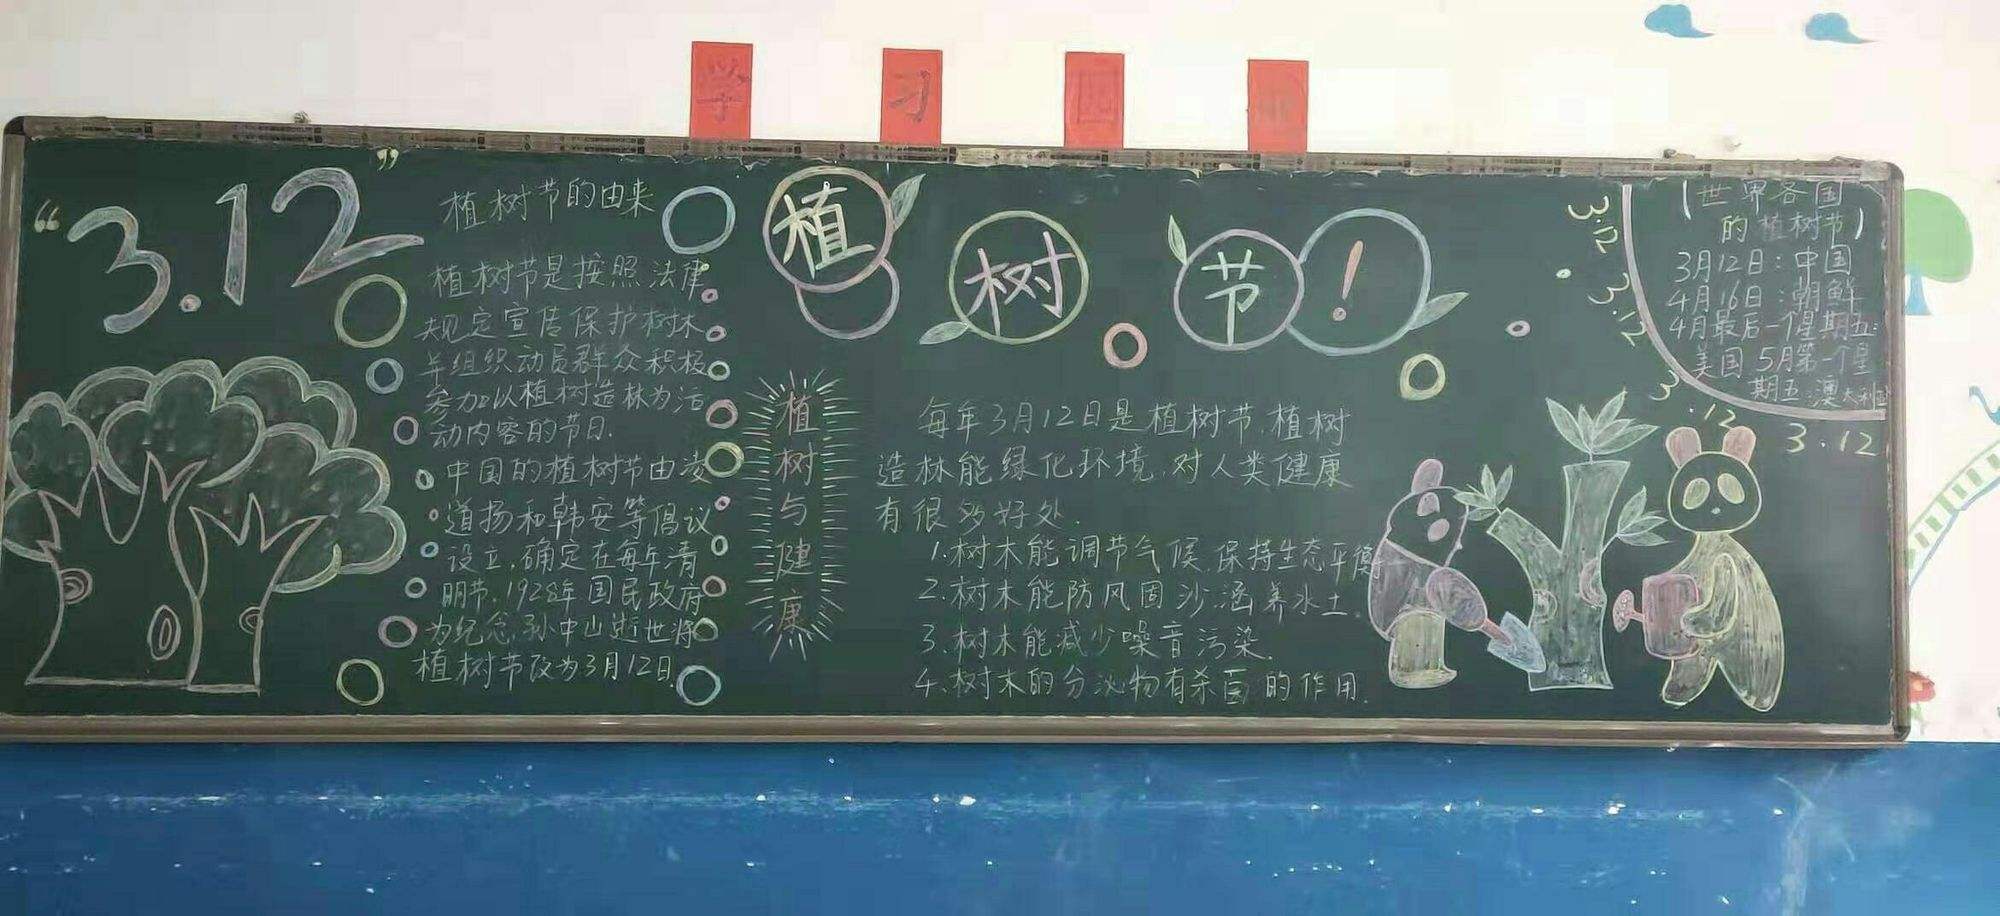 学习园
“3.12”
植树节的由来
植树节是按照法律
规定宣传保护树木
并组织动员群众积极
参加以植树造林为活
动内容的节日.
中国的植树节由凌
道扬和韩安等倡议
设立,确定在每年清
明节.1928年国民政府
为纪念孙中山逝世将
植树节改为3月12日.
植树节!
植树与健康
每年3月12日是植树节.植树
造林能绿化环境,对人类健康
有很多好处.
1.树木能调节气候,保持生态平衡
2.树木能防风固沙,涵养水土.
3.树木能减少噪音污染.
4.树木的分泌物有杀菌的作用.
世界各国
的植树节
3月12日:中国
4月16日:朝鲜
4月最后一个星期五:
美国 5月第一个星
期五:澳大利亚
3.12
3.12
3.12
3.12